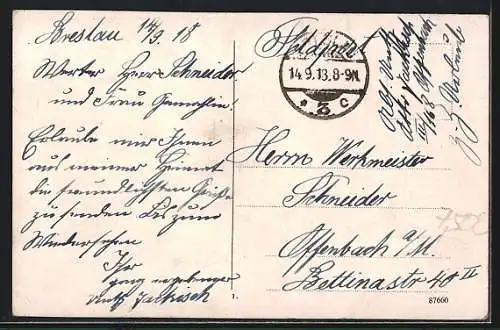 Breslau 14/9. 18
Werter Herr Schneider
und Frau Gemahlin!
Erlaube mir Ihnen
aus meiner Heimat
die freundlichsten Grüße
zu senden bis zum
Wiedersehen
Ihr
ganz ergebener
Jackisch
Feldpost
14.9.18.8-9N.
* 3 c
z. Z. Urlaub
Herrn Werkmeister
Schneider
Offenbach a/M.
Bettinastr 40 II
1.
87660